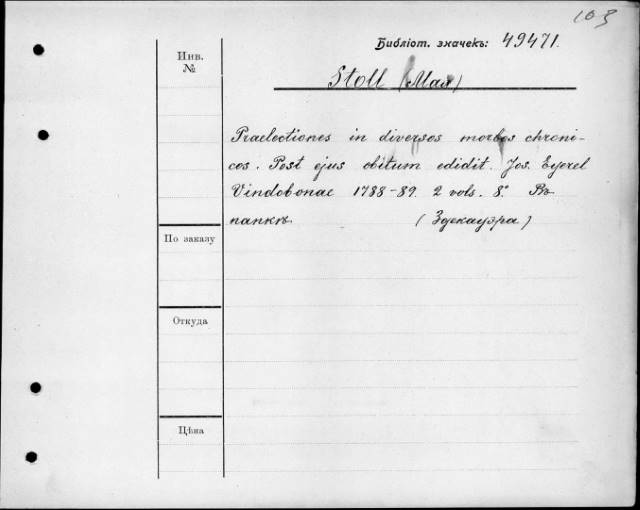 103
Библіот. значекъ: 49471.
Инв.
№
Stoll (Max)
Praelectiones in diversos morbos chroni-
cos. Post ejus obitum edidit. Jos. Eyerel
Vindobonae 1788-89. 2 vols. 8.° Въ
папкѣ (Здекауэра)
По заказу
Откуда
Цѣна